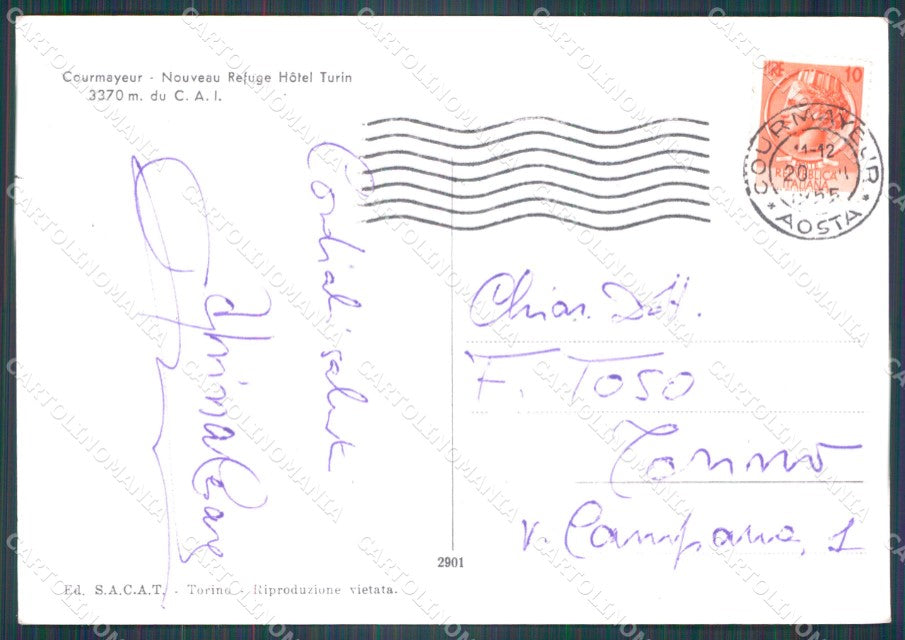 Courmayeur - Nouveau Refuge Hôtel Turin
3370 m. du C. A. I.
LIRE 10
REPUBBLICA
ITALIANA
COURMAYEUR
11-12
20
* AOSTA *
Cordiali saluti
Chiar. Dott.
F. Toso
Torino
v. Campana, 1
2901
Ed. S.A.C.A.T. - Torino - Riproduzione vietata.
CARTOLINOMANIA